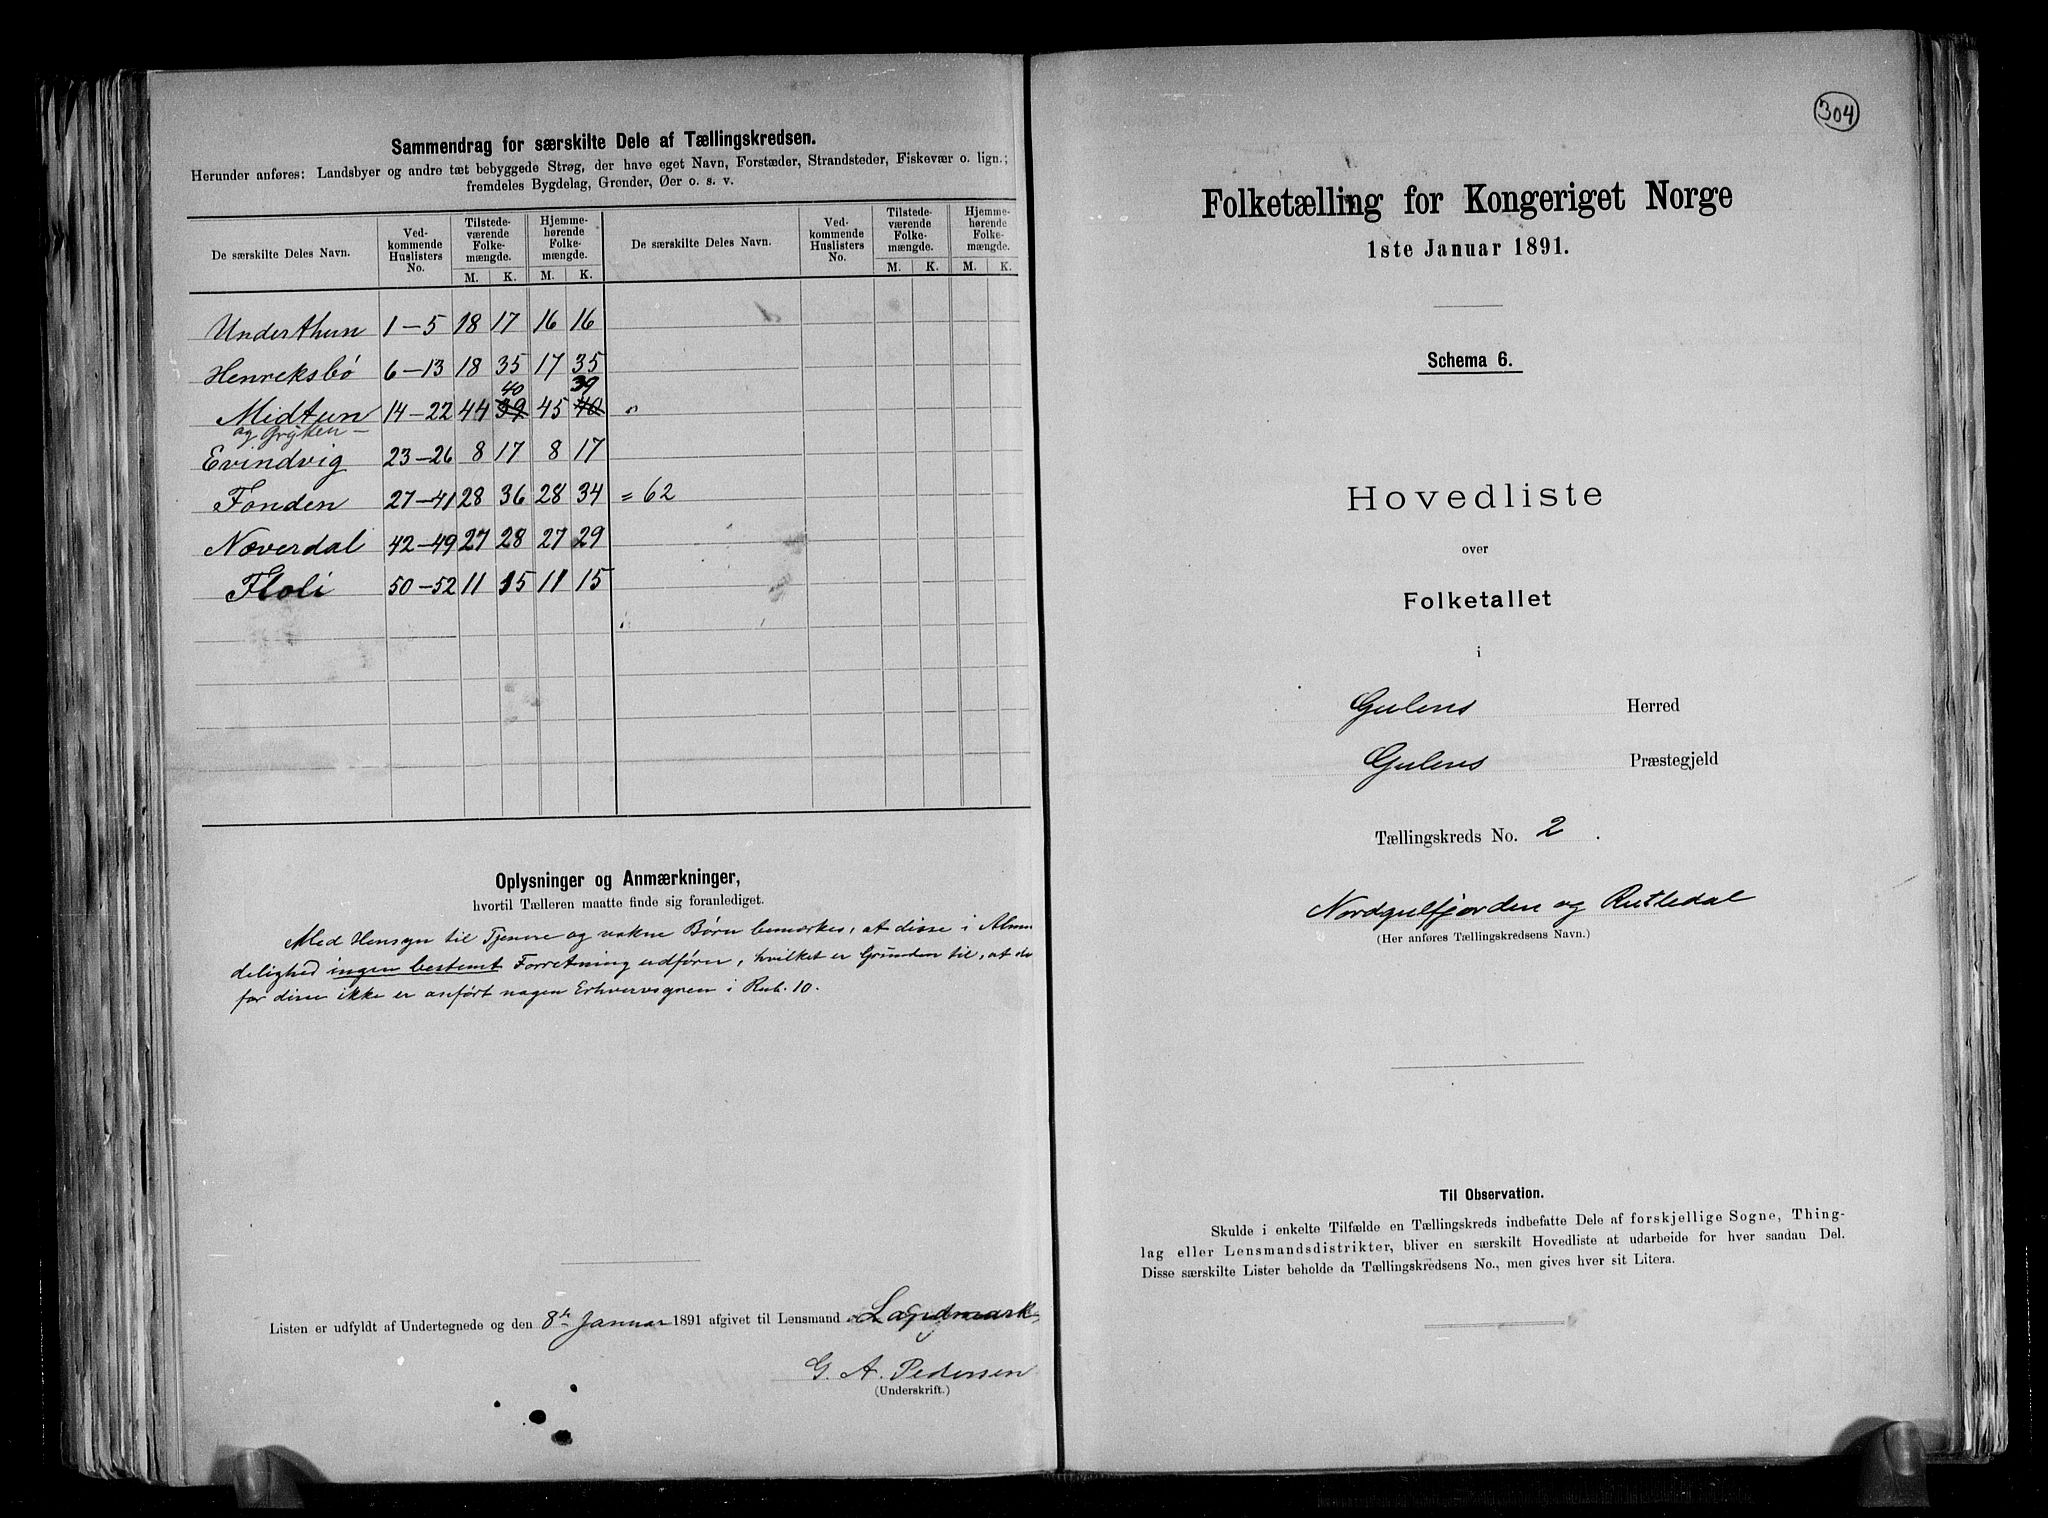 Sammendrag for særskilte Dele af Tællingskredsen.
Herunder anføres: Landsbyer og andre tæt bebyggede Strøg, der have eget Navn, Forstæder, Strandsteder, Fiskevær o. lign.;
fremdeles Bygdelag, Grender, Øer o. s. v.
De særskilte Deles Navn. Ved-kommende Huslisters No. Tilstede-værende Folke-mængde. Hjemme-hørende Folke-mængde. De særskilte Deles Navn. Ved-kommende Huslisters No. Tilstede-værende Folke-mængde. Hjemme-hørende Folke-mængde.
M. K. M. K. M. K. M. K.
Underthun 1-5 18 17 16 16
Henreksbø 6-13 18 35 17 35
40 39
Midtun 14-22 44 39 45 40 "
og Gryten
Evindvig 23-26 8 17 8 17
Fonden 27-41 28 36 28 34 = 62
Noverdal 42-49 27 28 27 29
Floli 50-52 11 15 11 15
Oplysninger og Anmærkninger,
hvortil Tælleren maatte finde sig foranlediget.
Med Hensyn til Tjenere og vakne Børn bemærkes, at disse i Almin
delighed ingen bestemt Forretning udfører, hvilket er Grunden til, at de
for disse ikke er anført nogen Erhvervsgren i Rub. 10.
Listen er udfyldt af Undertegnede og den 8de Januar 1891 afgivet til Lensmand Landmark
G. A. Pedersen
(Underskrift.)
304
Folketælling for Kongeriget Norge
1ste Januar 1891.
Schema 6.
Hovedliste
over
Folketallet
i
Gulens Herred
Gulens Præstegjeld
Tællingskreds No. 2.
Nordgulfjorden og Rutledal
(Her anføres Tællingskredsens Navn.)
Til Observation.
Skulde i enkelte Tilfælde en Tællingskreds indbefatte Dele af forskjellige Sogne, Thing-
lag eller Lensmandsdistrikter, bliver en særskilt Hovedliste at udarbeide for hver saadan Del.
Disse særskilte Lister beholde da Tællingskredsens No., men gives hver sit Litera.